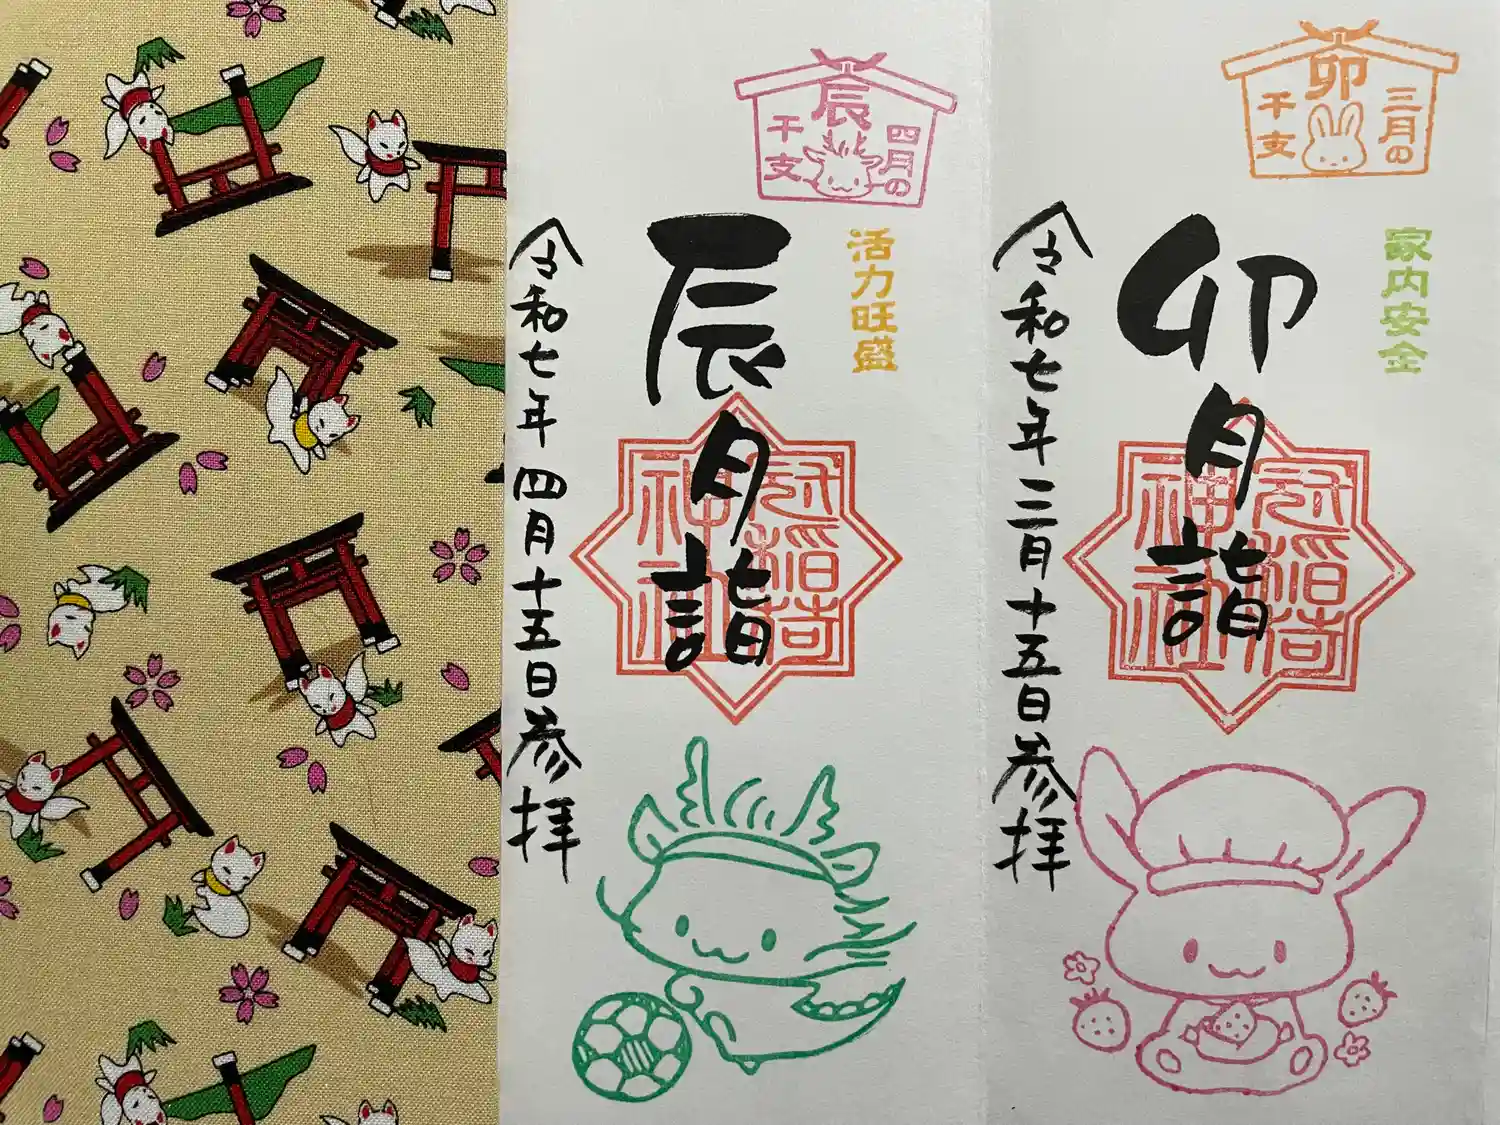 卯
三月の
干支
家内安全
卯月詣
冠稲荷神社
令和七年三月十五日参拝
辰
四月の
干支
活力旺盛
辰月詣
冠稲荷神社
令和七年四月十五日参拝